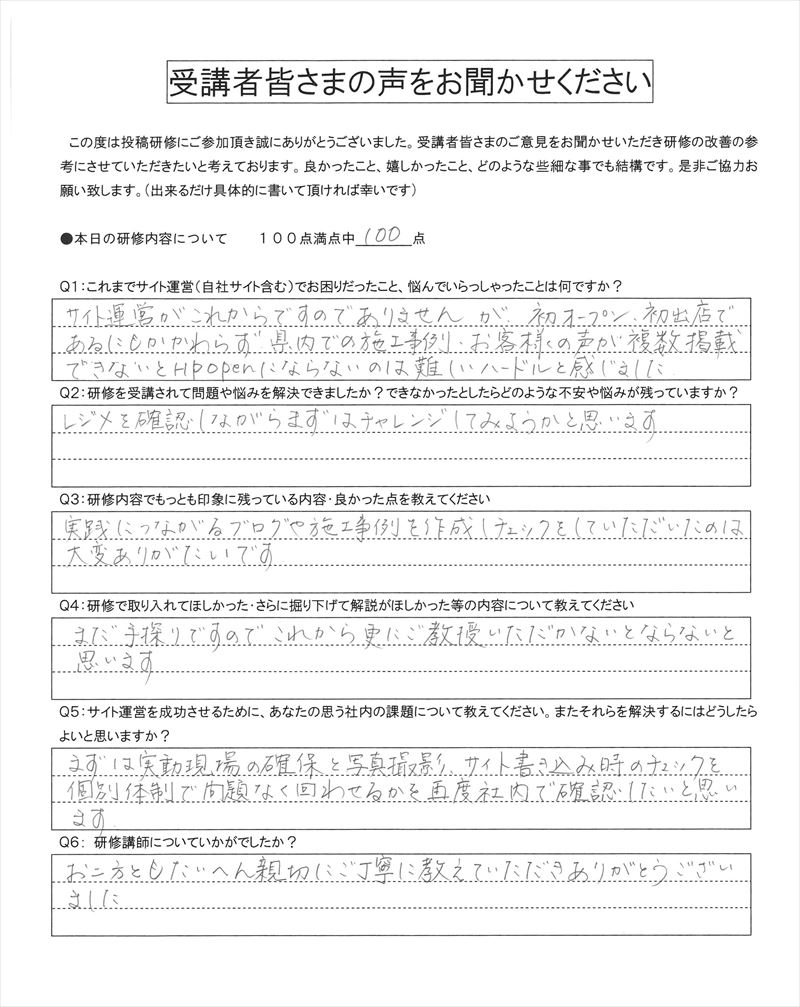 受講者皆さまの声をお聞かせください
この度は投稿研修にご参加頂き誠にありがとうございました。受講者皆さまのご意見をお聞かせいただき研修の改善の参
考にさせていただきたいと考えております。良かったこと、嬉しかったこと、どのような些細な事でも結構です。是非ご協力お
願い致します。（出来るだけ具体的に書いて頂ければ幸いです）
●本日の研修内容について　１００点満点中 100 点
Q１：これまでサイト運営（自社サイト含む）でお困りだったこと、悩んでいらっしゃったことは何ですか？
サイト運営がこれからですのでありません が、初オープン、初出店で
あるにもかかわらず 県内での施工事例・お客様の声が複数掲載
できないとHPopenにならないのは難しいハードルと感じました
Q２：研修を受講されて問題や悩みを解決できましたか？できなかったとしたらどのような不安や悩みが残っていますか？
レジメを確認しながらまずはチャレンジしてみようかと思います
Q３：研修内容でもっとも印象に残っている内容・良かった点を教えてください
実践につながるブログや施工事例を作成しチェックをしていただいたのは
大変ありがたいです
Q４：研修で取り入れてほしかった・さらに掘り下げて解説がほしかった等の内容について教えてください
まだ手探りですのでこれから更にご教授いただかないとならないと
思います
Q５：サイト運営を成功させるために、あなたの思う社内の課題について教えてください。またそれらを解決するにはどうしたら
よいと思いますか？
まずは実動現場の確保と写真撮影、サイト書き込み時のチェックを
個別体制で問題なく回わせるかを再度社内で確認したいと思い
ます
Q６： 研修講師についていかがでしたか？
お二方ともたいへん親切にご丁寧に教えていただきありがとうござい
ました